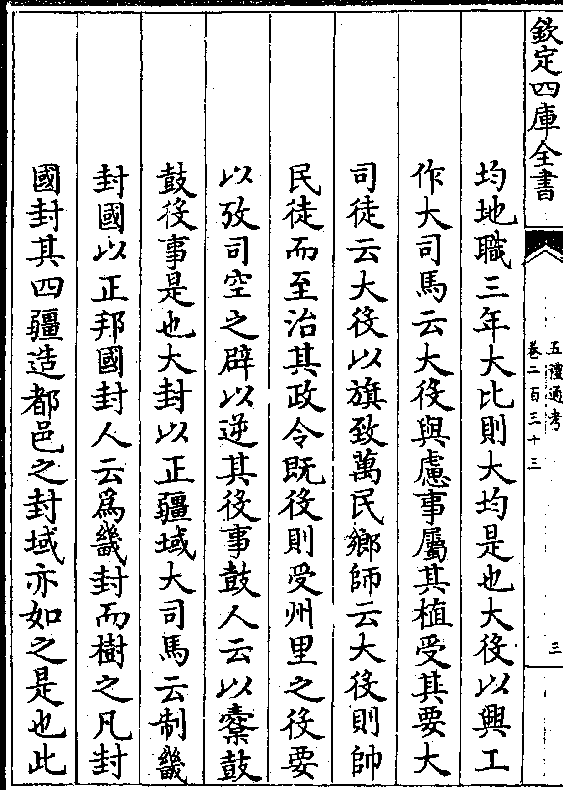 欽定四庫全書
五禮通考
卷二百三十三
三
均地職三年大比則大均是也大役以興工
作大司馬云大役與慮事屬其植受其要大
司徒云大役以旗致萬民鄉師云大役則帥
民徒而至治其政令既役則受州里之役要
以攷司空之辟以逆其役事鼓人云以鼛鼓
鼓役事是也大封以正疆域大司馬云制畿
封國以正邦國封人云為畿封而樹之凡封
國封其四疆造都邑之封域亦如之是也此